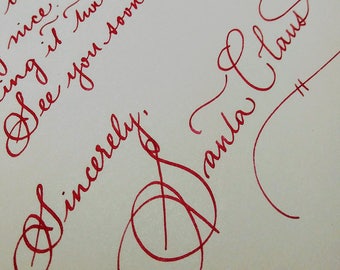 nice.
ing it
See you soon
Sincerely,
Santa Claus